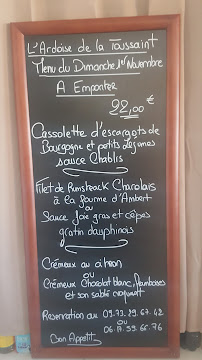 L'Ardoise de la Toussaint
Menu du Dimanche 1er Novembre
A Emporter
22,00€
Cassolette d'escargots de
Bourgogne et petits légumes
sauce Chablis
Filet de Rumsteack Charolais
à la fourme d'Ambert
ou
Sauce foie gras et cèpes
gratin dauphinois
Crémeux au citron
ou
Crémeux Chocolat blanc, framboises
et son sablé croquant
Reservation au 09.73.29.67.42
ou
Bon Appetit